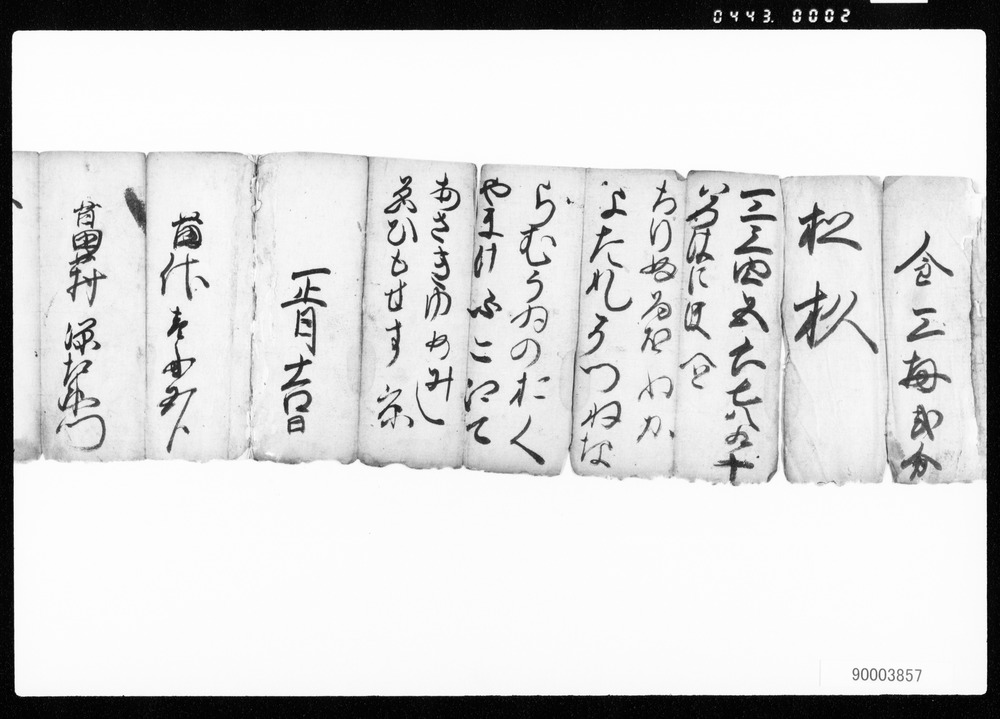 0443. 0002
金三 弐分
松 杦
一二三四五六七八九十
いろはにほへと
ちりぬるをわか
よたれそつねな
らむうゐのおく
やまけふこえて
あさきゆめみし
ゑひもせす 京
正月吉日
村 右衛門
90003857